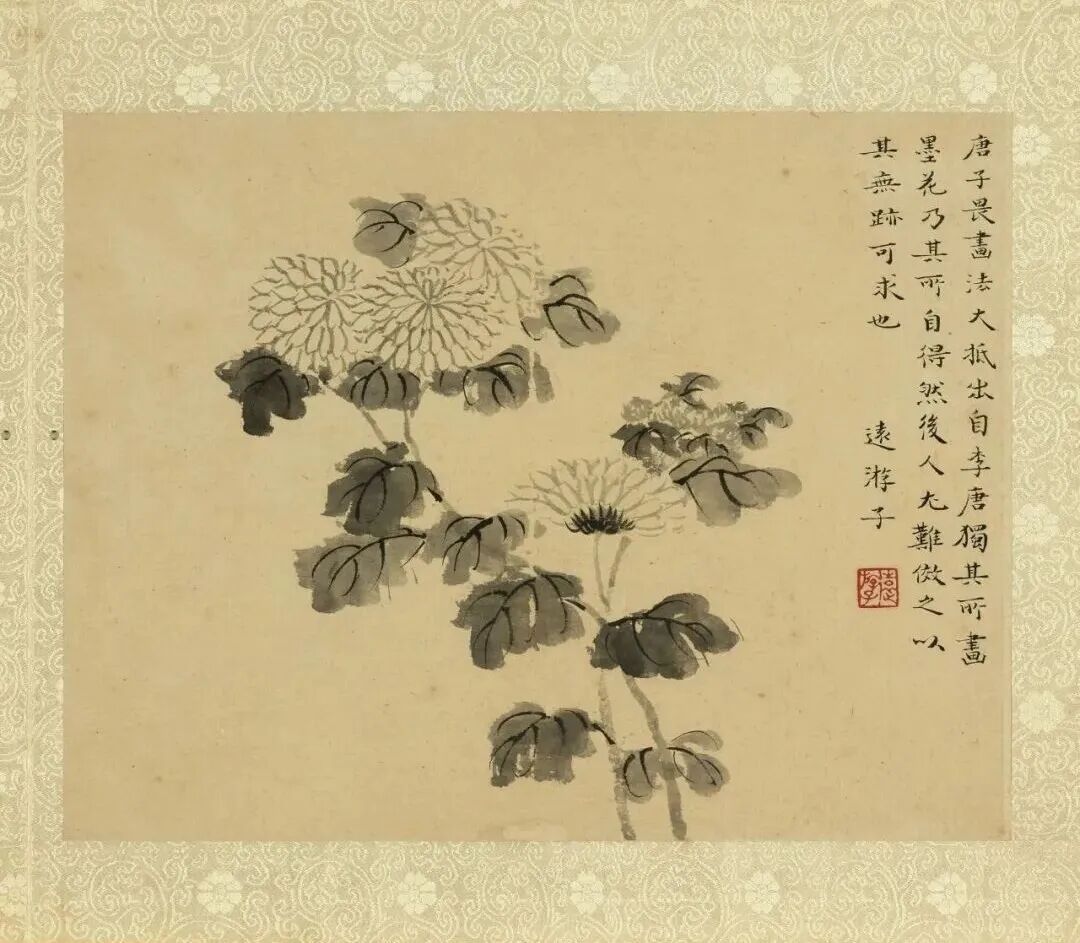 唐子畏畫法大抵出自李唐獨其所畫
墨花乃其所自得然後人尤難倣之以
其無跡可求也
遠游子